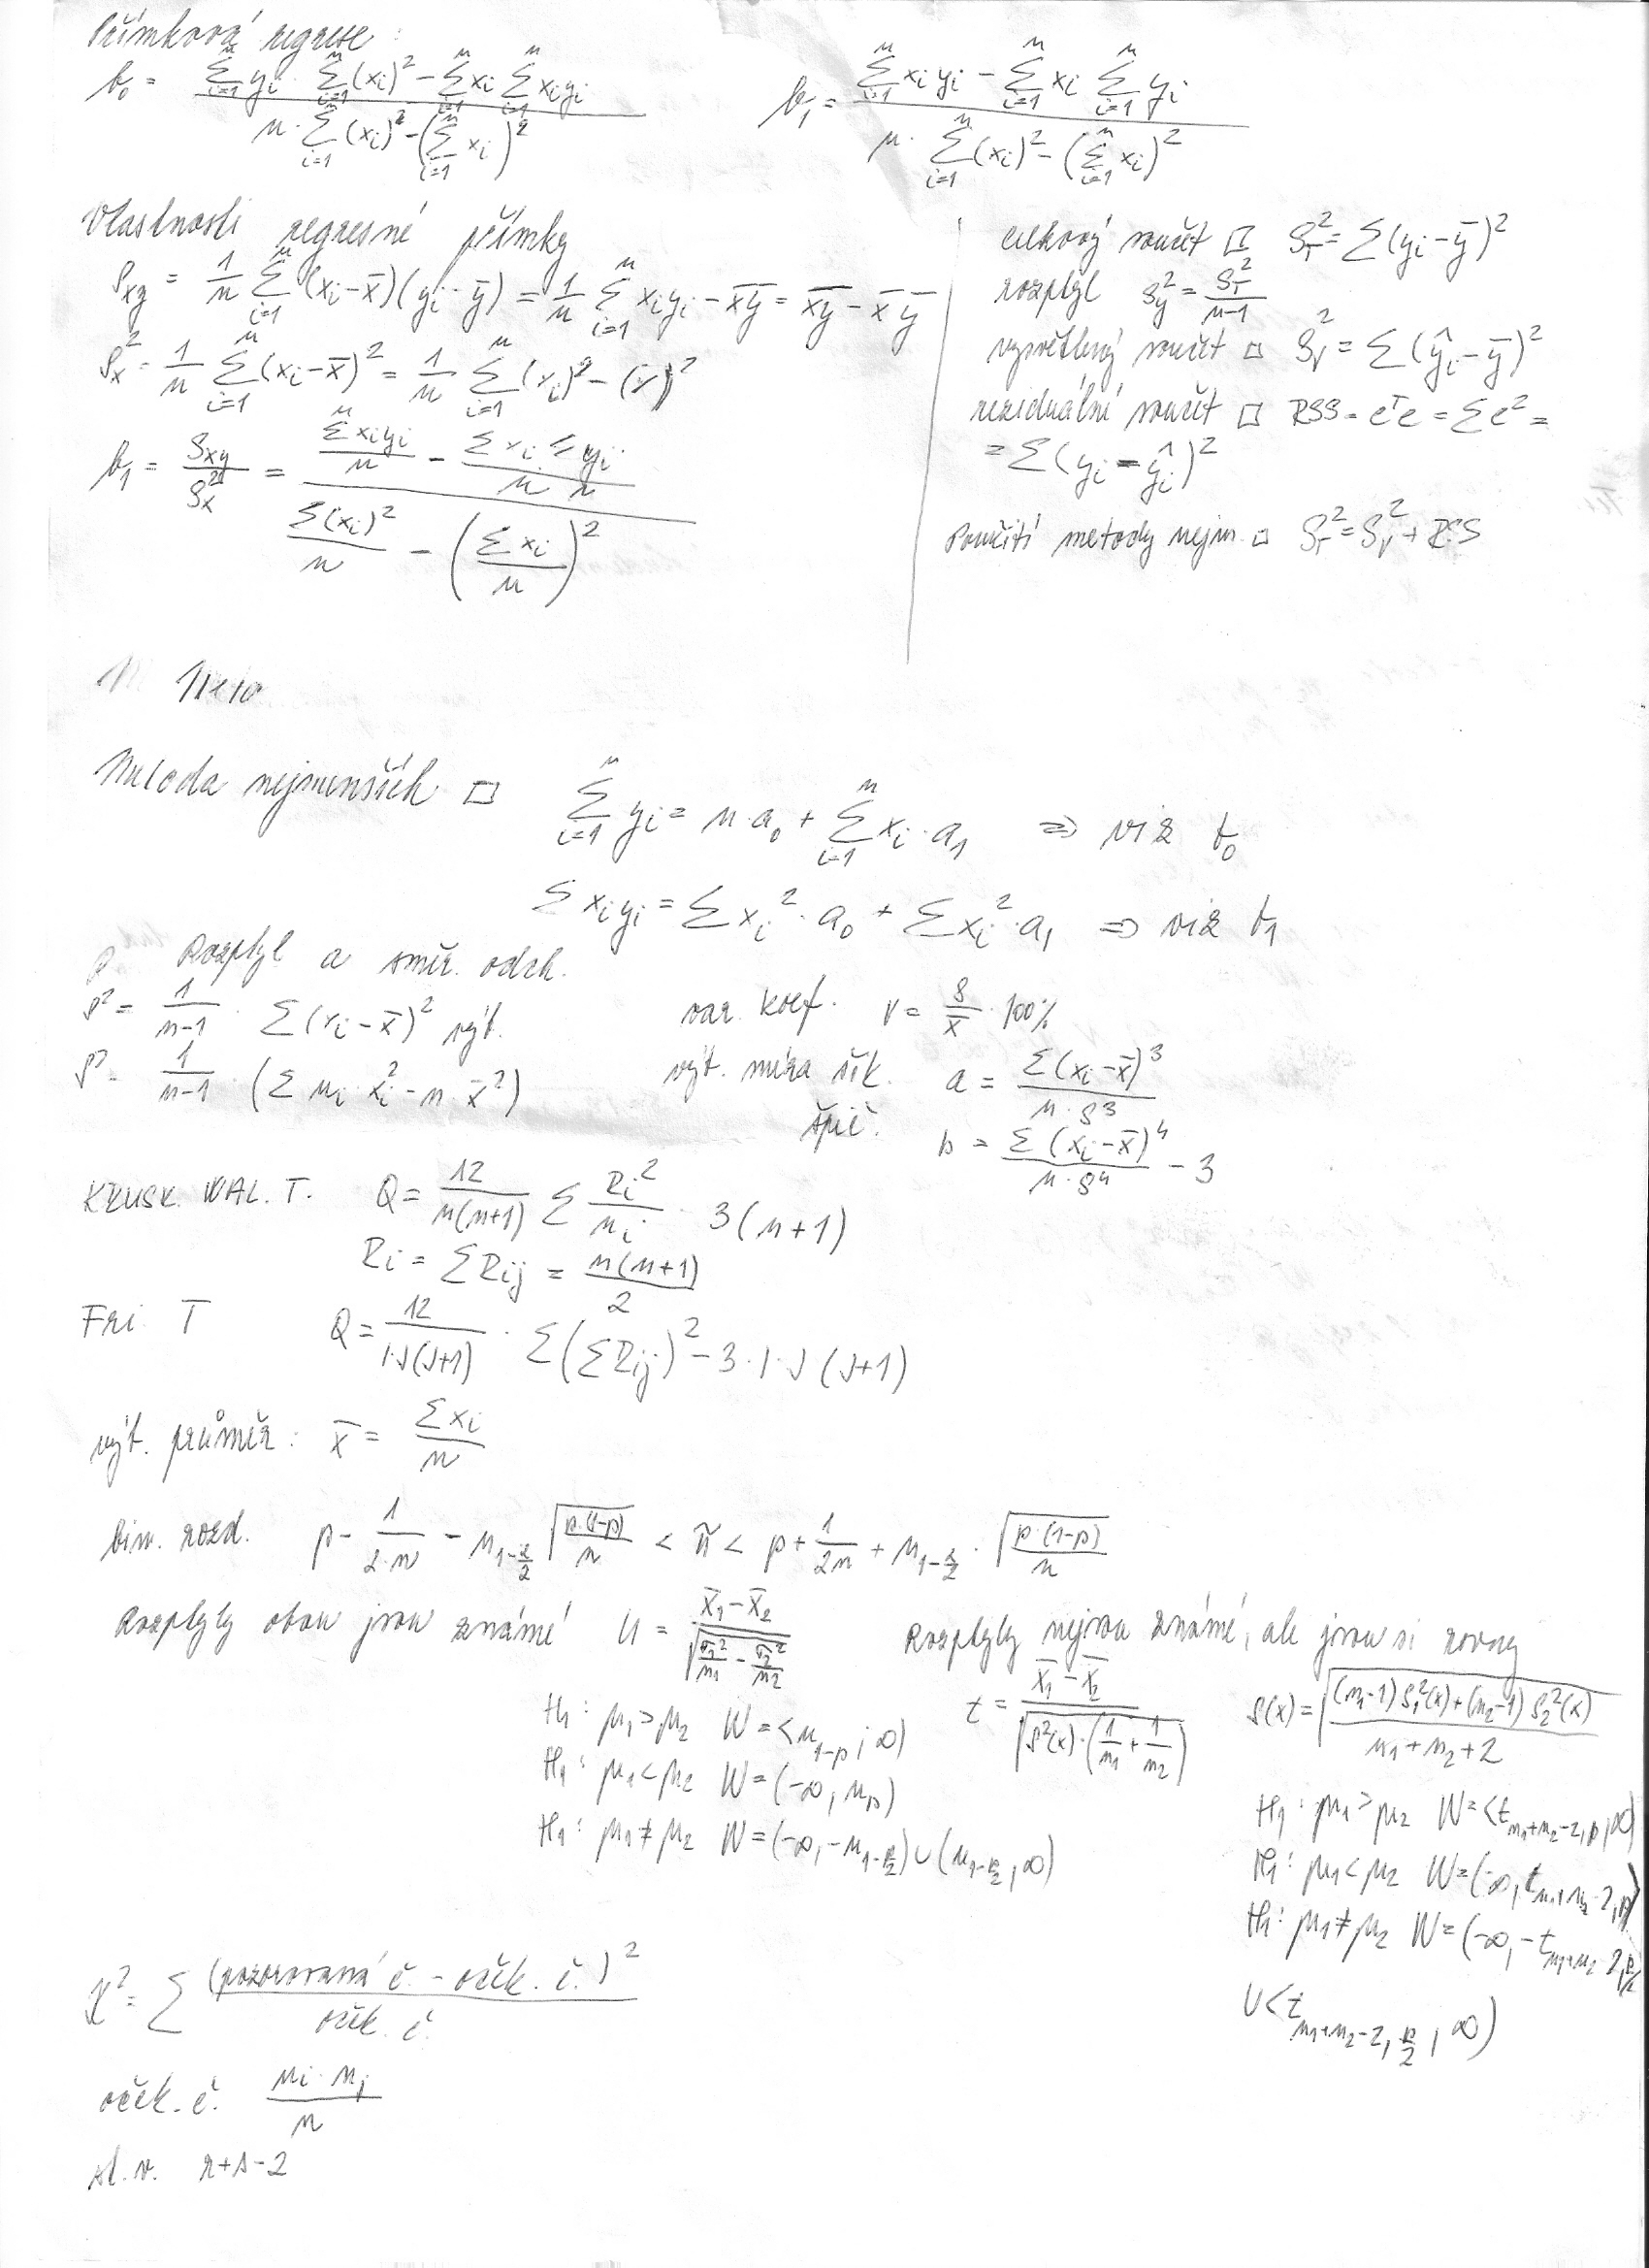 Přímková regrese:
b₀ = (Σⁿᵢ₌₁ yᵢ · Σⁿᵢ₌₁(xᵢ)² − Σⁿᵢ₌₁xᵢ Σⁿᵢ₌₁xᵢyᵢ) / (n · Σⁿᵢ₌₁(xᵢ)² − (Σⁿᵢ₌₁xᵢ)²)
b₁ = (Σⁿᵢ₌₁xᵢyᵢ − Σⁿᵢ₌₁xᵢ Σⁿᵢ₌₁yᵢ) / (n · Σⁿᵢ₌₁(xᵢ)² − (Σⁿᵢ₌₁xᵢ)²)
Vlastnosti regresné přímky
Sxy = 1/n Σⁿᵢ₌₁(xᵢ−x̄)(yᵢ−ȳ) = 1/n Σⁿᵢ₌₁xᵢyᵢ − x̄ȳ = x̄ȳ − x̄ ȳ
Sx² = 1/n Σⁿᵢ₌₁(xᵢ−x̄)² = 1/n Σⁿᵢ₌₁(xᵢ)² − (x̄)²
b₁ = Sxy/Sx² = (Σxᵢyᵢ/n − Σxᵢ Σyᵢ/(n·n)) / (Σ(xᵢ)²/n − (Σxᵢ/n)²)
celkový součet □ S_T² = Σ(yᵢ−ȳ)²
rozptyl Sy² = S_T²/(n−1)
vysvětlený součet □ S_V² = Σ(ŷᵢ−ȳ)²
reziduální součet □ RSS = eᵀe = Σe² =
= Σ(yᵢ−ŷᵢ)²
Použití metody nejm □ S_T² = S_V² + RSS
Metoda nejmenších □ Σⁿᵢ₌₁yᵢ = n·a₀ + Σⁿᵢ₌₁xᵢ·a₁ ⇒ viz b₀
Σxᵢyᵢ = Σxᵢ²·a₀ + Σxᵢ²·a₁ ⇒ viz b₁
Rozptyl a směr. odch.
s² = 1/(n−1) · Σ(xᵢ−x̄)² výb.
s² = 1/(n−1) · (Σnᵢ·xᵢ² − n·x̄²)
var. koef. v = s/x̄ · 100%
výb. míra šik. a = Σ(xᵢ−x̄)³/(n·s³)
špič. b = Σ(xᵢ−x̄)⁴/(n·s⁴) − 3
KRUSK. WAL. T. Q = 12/(n(n+1)) Σ Rᵢ²/nᵢ · 3(n+1)
Rᵢ = ΣRᵢⱼ = n(n+1)/2
FRI. T Q = 12/(I·J(J+1)) · Σ(ΣRᵢⱼ)² − 3·I·J(J+1)
výb. průměr: x̄ = Σxᵢ/n
bin. rozd. p − 1/(2·n) − u₁₋α/₂ √(p·(1−p)/n) < π < p + 1/(2n) + u₁₋α/₂ · √(p·(1−p)/n)
Rozptyly obou jsou známé U = (x̄₁−x̄₂)/√(σ₁²/n₁ − σ₂²/n₂)
H₁: μ₁>μ₂ W=<u₁₋p; ∞)
H₁: μ₁<μ₂ W=(−∞, up)
H₁: μ₁≠μ₂ W=(−∞, −u₁₋p/₂) ∪ (u₁₋p/₂, ∞)
Rozptyly nejsou známé, ale jsou si rovny
t = (x̄₁−x̄₂)/√(S²(x)·(1/n₁+1/n₂))
S(x) = √(((n₁−1)S₁²(x)+(n₂−1)S₂²(x))/(n₁+n₂+2))
H₁: μ₁>μ₂ W=<t n₁+n₂−2,p, ∞)
H₁: μ₁<μ₂ W=(−∞, t n₁+n₂−2,p)
H₁: μ₁≠μ₂ W=(−∞, −t n₁+n₂−2,p/2)
∪<t n₁+n₂−2, p/2, ∞)
χ² = Σ (pozorovaná č. − oček. č.)²/oček. č.
oček. č. nᵢ·nⱼ/n
st. v. r+s−2